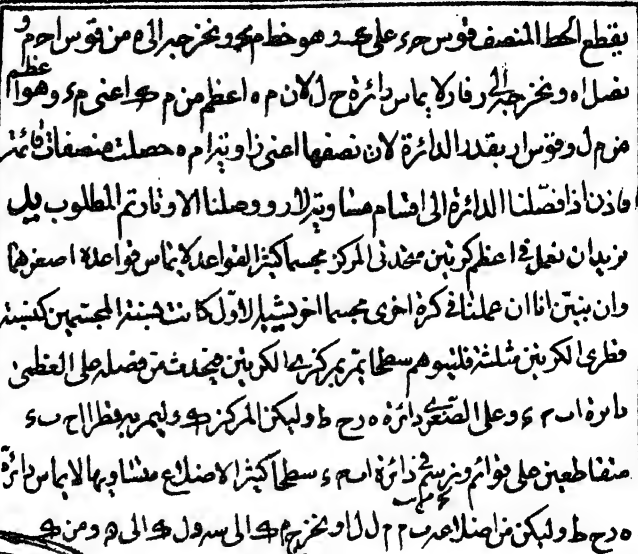 يقطع الخط المنصف قوس حء على وهو خط م ونخرجه الى ه من قوس ا حم و
نصل اه ونخرجه الى ر فار لا يماس دائرة ح ل لان م ه اعظم من م ك اعنى م ء وهو اعظم
من م ل وقوس ار يقدر الدائرة لان نصفها اعنى زاويتى ا م ه حصلت منصفات قائمة
فاذن اذا فصلنا الدائرة الى اقسام متساوية لار ووصلنا الاوتار تم المطلوب يد
نريد ان نعمل فى اعظم كرتين متحدتى المركز مجسما كثير القواعد لا يماس قواعده اصغرهما
وان نبين انا ان عملنا فى كرة اخرى مجسما اخر شبيها بالاول كانت نسبة المجسمين كنسبة
قطرى الكرتين مثلثة فليتوهم سطحا يمر بمركزى الكرتين فيحدث من فصله على العظمى
دائرة اب م ء وعلى الصغرى دائرة ه رح ط وليكن المركز ك وليمر به قطرا اح ب ء
متقاطعين على قوائم ونرسم فى دائرة اب م ء سطحا كثير الاضلاع متساويها لا يماس دائرة
ه رح ط وليكن من اضلاعه ب م م ل ل ا ونخرج م ك الى س ول ك الى ه ومن ك